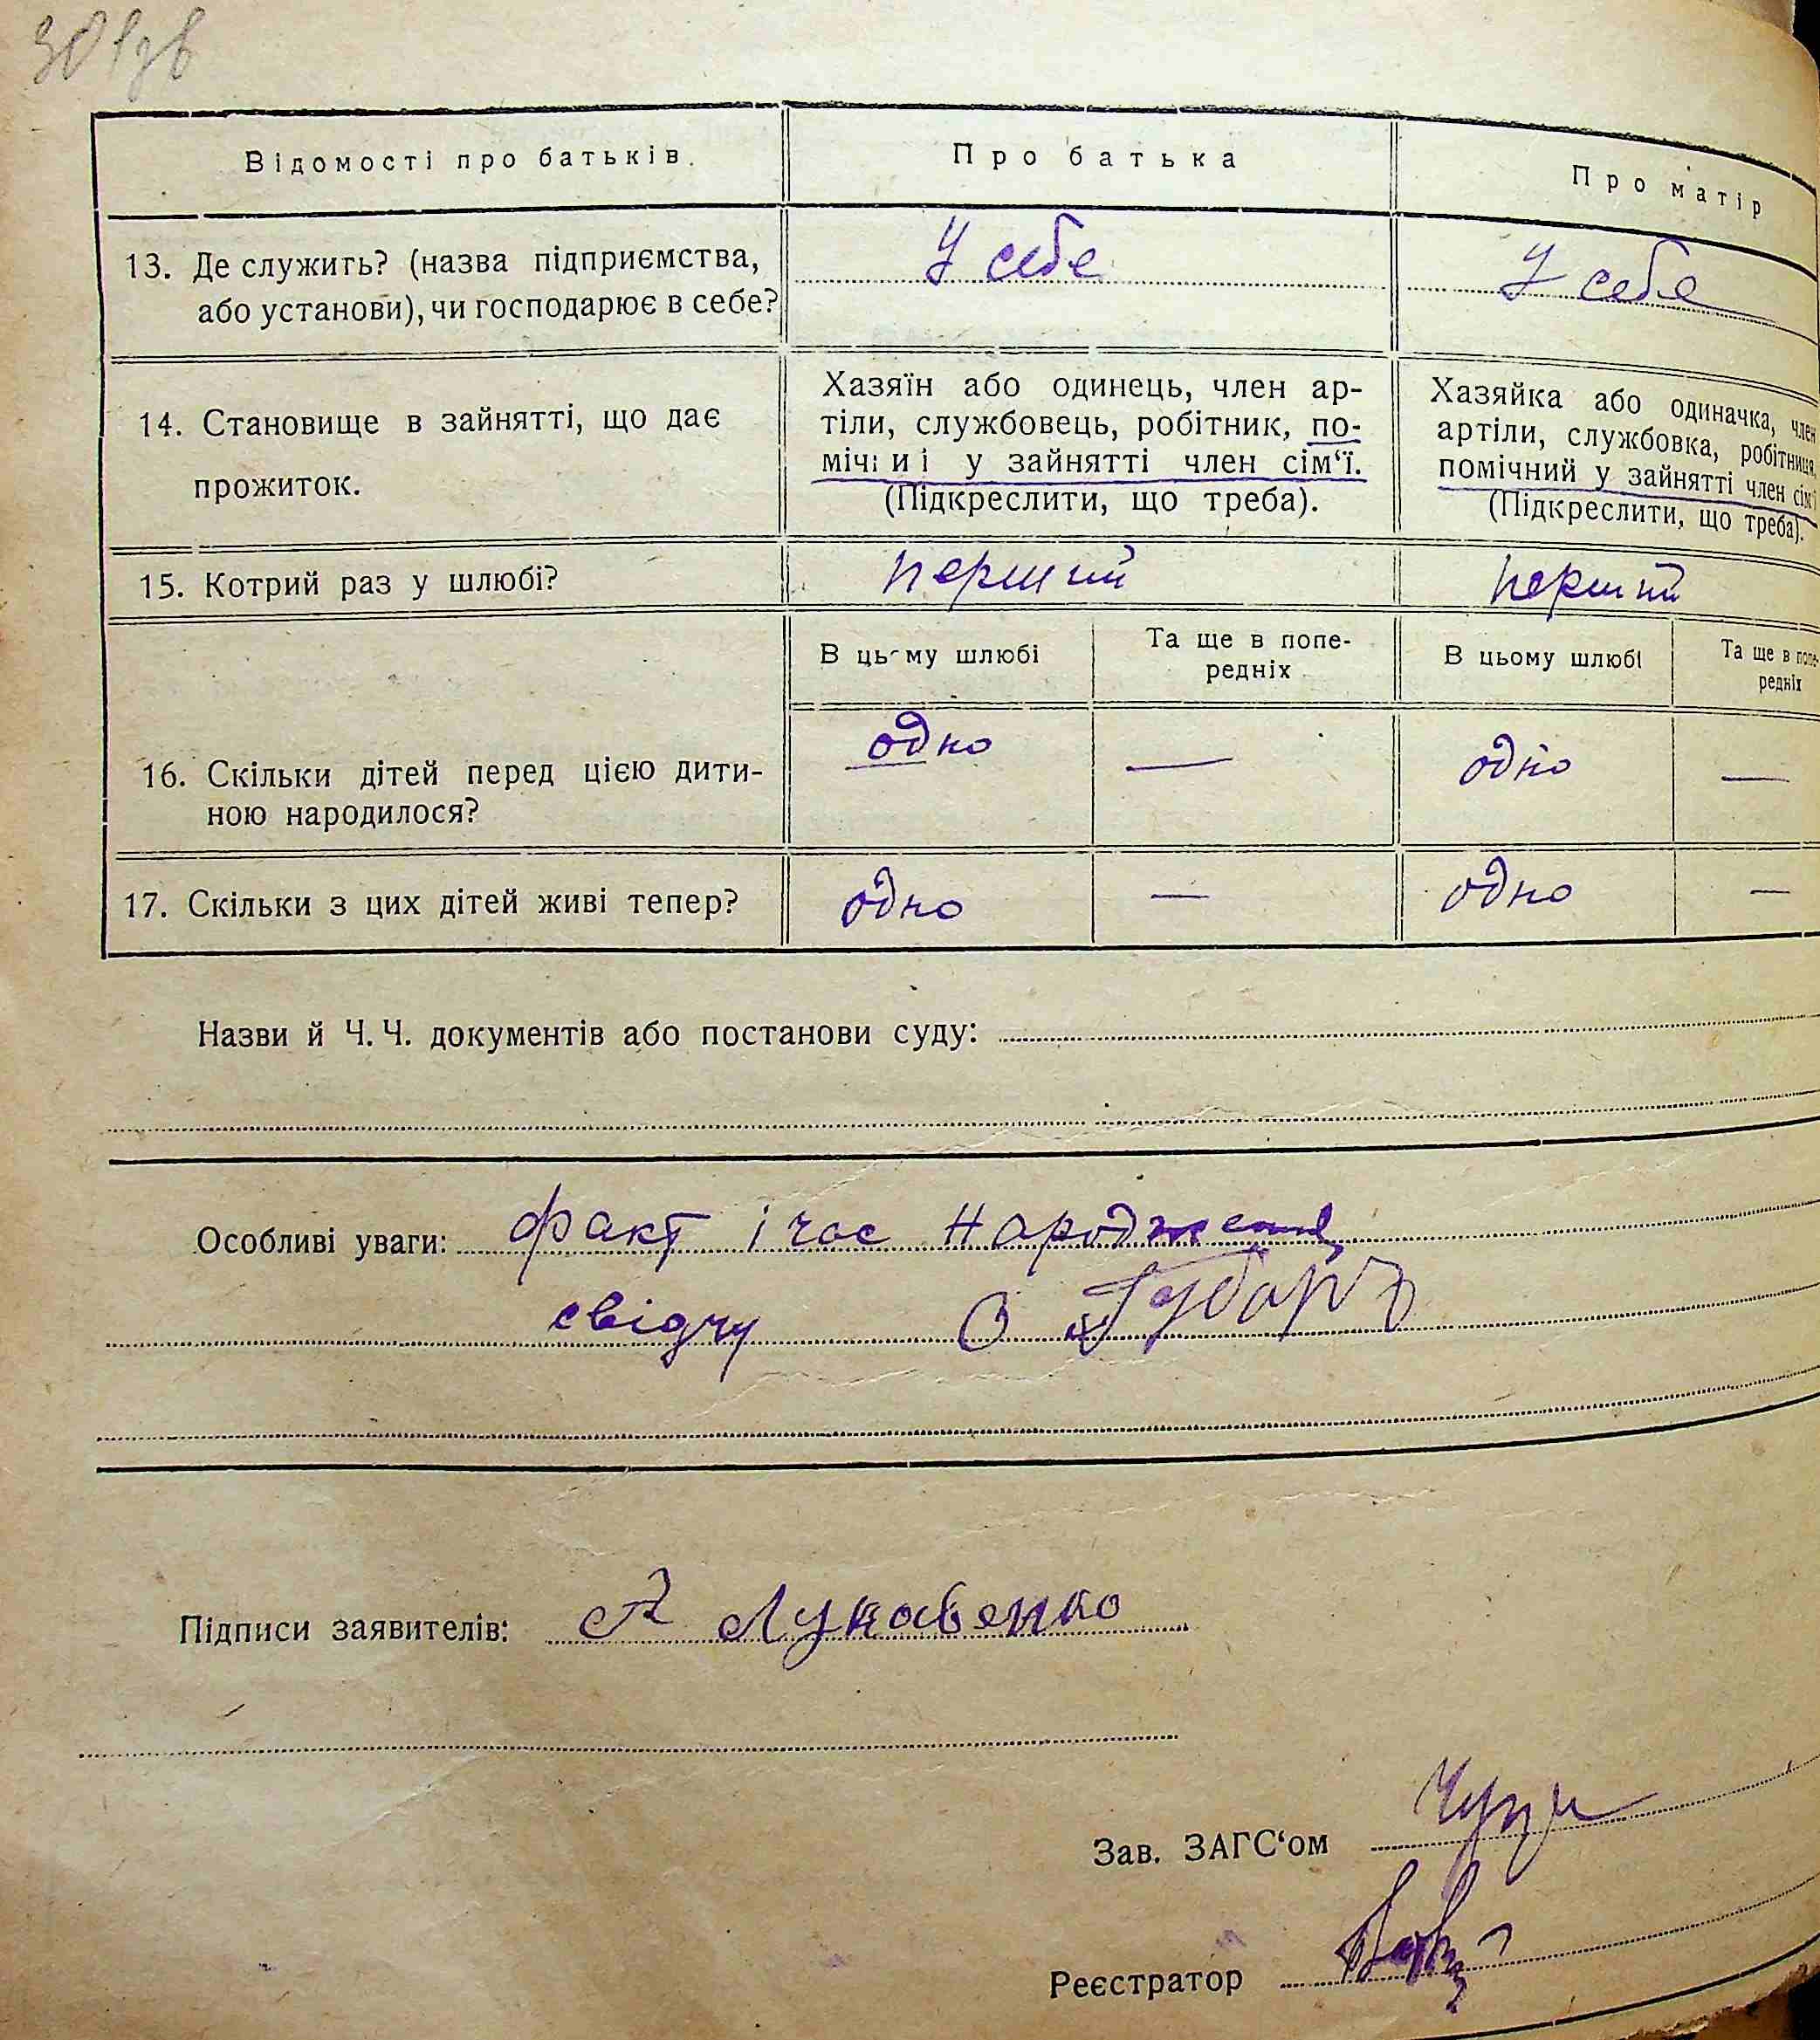 30 Iзв
Відомості про батьків.
Про батька
Про матір
13. Де служить? (назва підприємства,
або установи), чи господарює в себе?
У себе
У себе
14. Становище в зайнятті, що дає
прожиток.
Хазяїн або одинець, член ар-
тіли, службовець, робітник, по-
мічний у зайнятті член сім‘ї.
(Підкреслити, що треба).
Хазяйка або одиначка, член
артіли, службовка, робітниця,
помічний у зайнятті член сім‘ї
(Підкреслити, що треба).
15. Котрий раз у шлюбі?
перший
перший
В цьому шлюбі
Та ще в попе-
редніх
В цьому шлюбі
Та ще в попе-
редніх
16. Скільки дітей перед цією дити-
ною народилося?
одно
—
одно
—
17. Скільки з цих дітей живі тепер?
одно
—
одно
—
Назви й Ч. Ч. документів або постанови суду:
Особливі уваги: факт і час народження
свідчу О Губарь
Підписи заявителів: Лукавенко
Зав. ЗАГС‘ом
Реєстратор